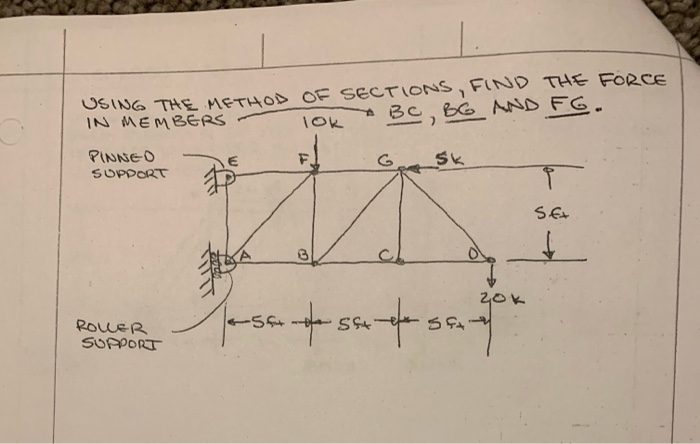 USING THE METHOD OF SECTIONS, FIND THE FORCE
IN MEMBERS BC, BG AND FG.
10K
PINNED
SUPPORT
E
F
G
5K
5ft
A
B
C
D
20K
5ft
5ft
5ft
ROLLER
SUPPORT